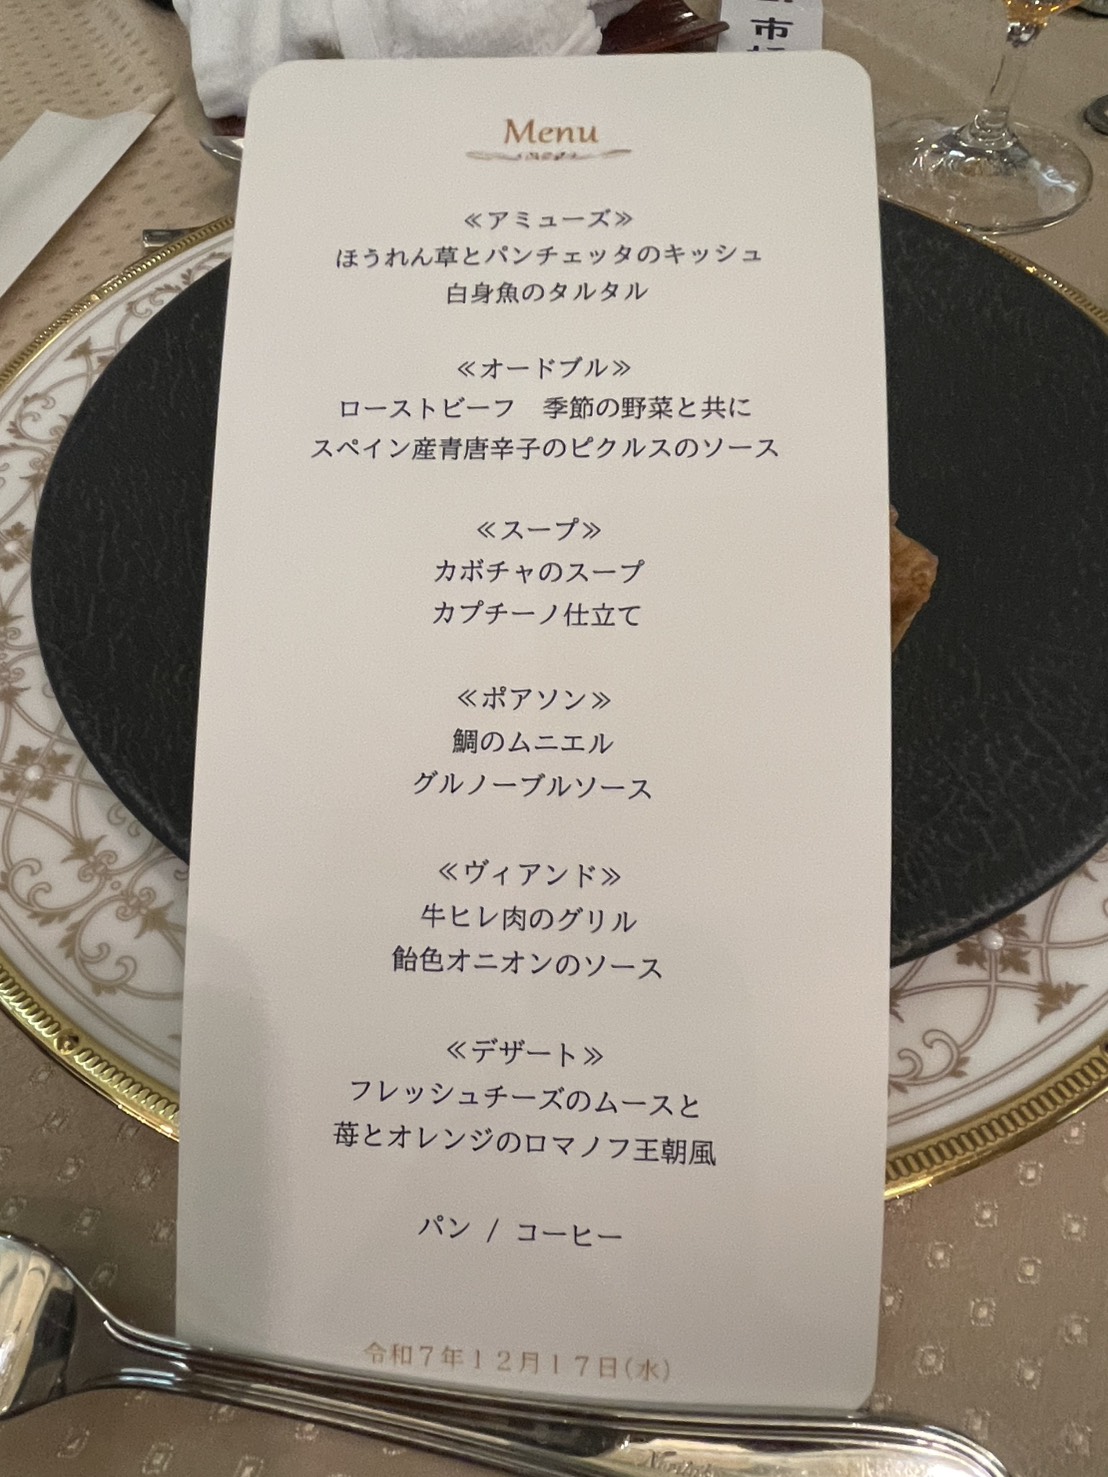 市
Menu
≪アミューズ≫
ほうれん草とパンチェッタのキッシュ
白身魚のタルタル
≪オードブル≫
ローストビーフ　季節の野菜と共に
スペイン産青唐辛子のピクルスのソース
≪スープ≫
カボチャのスープ
カプチーノ仕立て
≪ポアソン≫
鯛のムニエル
グルノーブルソース
≪ヴィアンド≫
牛ヒレ肉のグリル
飴色オニオンのソース
≪デザート≫
フレッシュチーズのムースと
苺とオレンジのロマノフ王朝風
パン / コーヒー
令和７年１２月１７日(水)